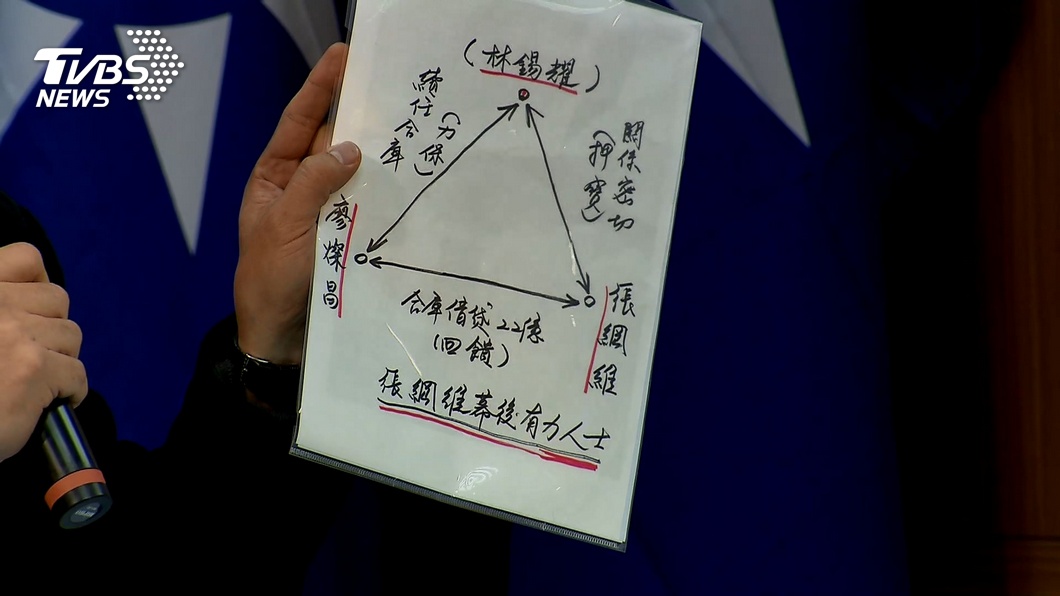 TVBS
NEWS
(林錫耀)
續任合庫
(力保)
關係密切
(押寶)
廖燦昌
張綱維
合庫借貸22億
(回饋)
張綱維幕後有力人士